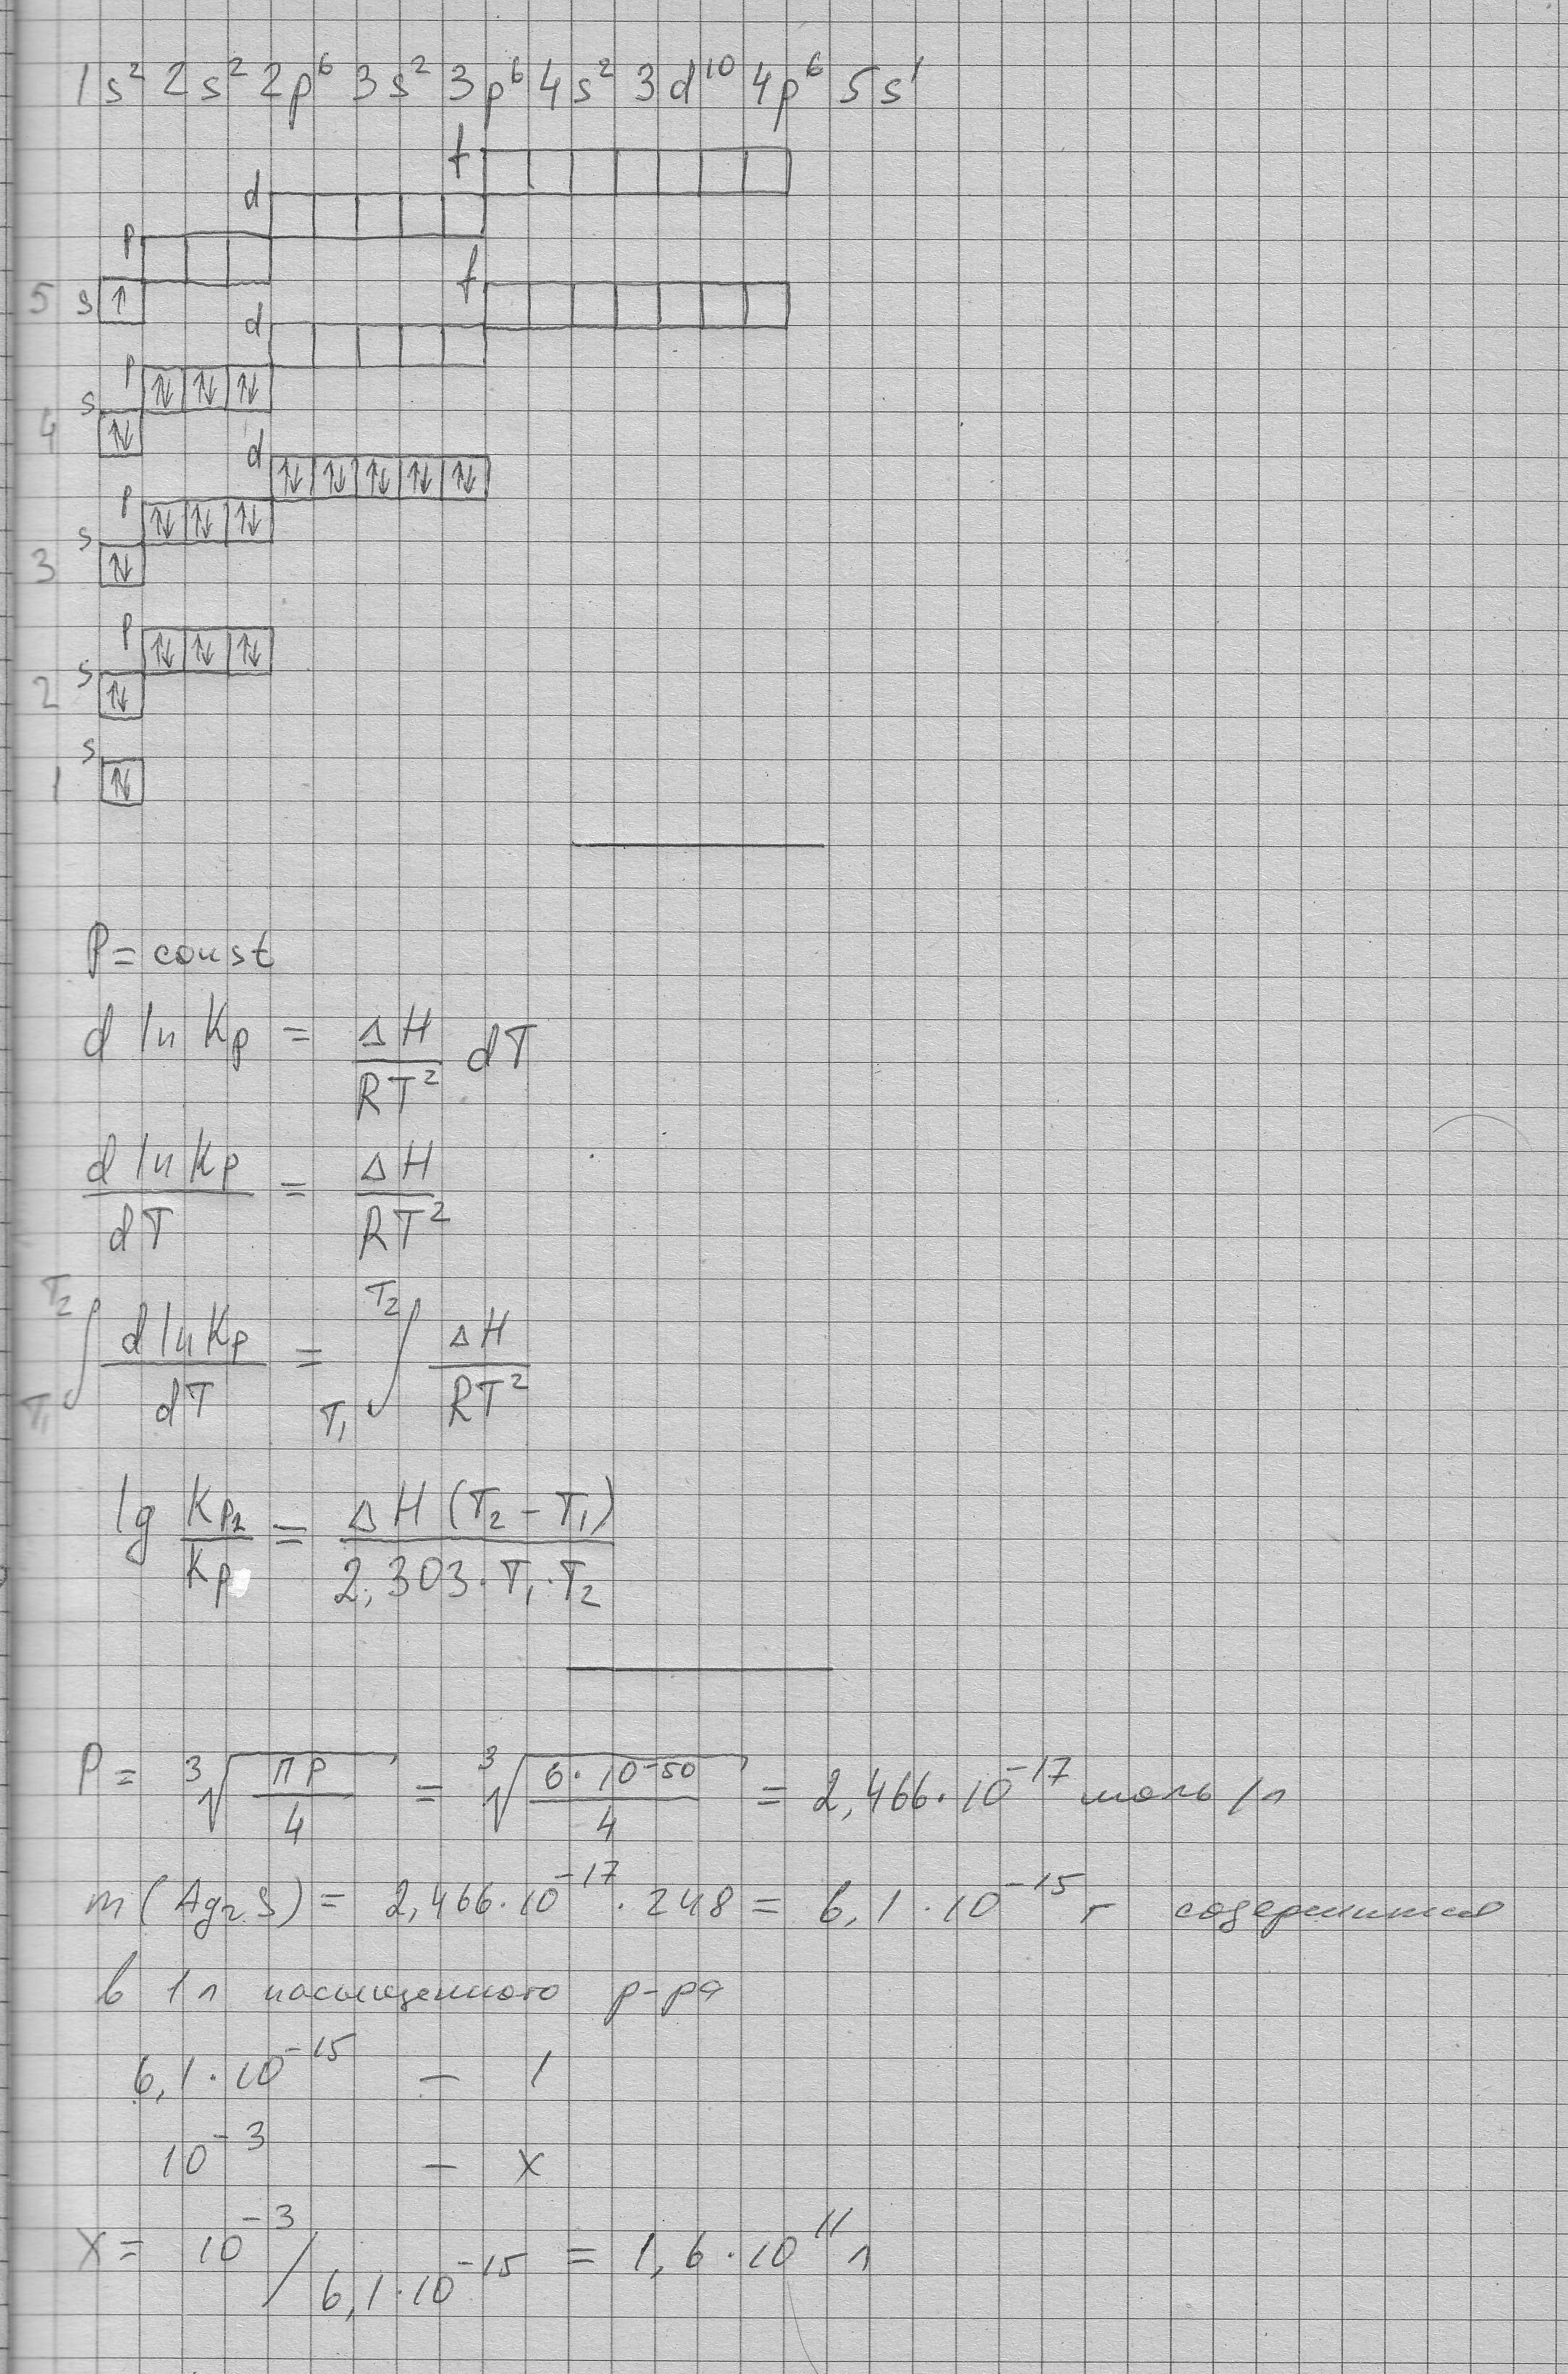 1s² 2s² 2p⁶ 3s² 3p⁶ 4s² 3d¹⁰ 4p⁶ 5s¹
f
d
p
5 s ↑
f
d
p ↑↓ ↑↓ ↑↓
s
4 ↑↓
d ↑↓ ↑↓ ↑↓ ↑↓ ↑↓
p ↑↓ ↑↓ ↑↓
s
3 ↑↓
p ↑↓ ↑↓ ↑↓
s
2 ↑↓
s
1 ↑↓
P = const
d ln Kp = ΔH / RT² dT
d ln Kp / dT = ΔH / RT²
T₂ ∫ T₁ d ln Kp / dT = T₂ ∫ T₁ ΔH / RT²
lg Kp₂ / Kp = ΔH (T₂ - T₁) / 2,303 · T₁ · T₂
P = ³√(ПР / 4) = ³√(6 · 10⁻⁵⁰ / 4) = 2,466 · 10⁻¹⁷ моль/л
m (Ag₂S) = 2,466 · 10⁻¹⁷ · 248 = 6,1 · 10⁻¹⁵ г содержится
в 1 л насыщенного р-ра
6,1 · 10⁻¹⁵ – 1
10⁻³ – x
x = 10⁻³ / 6,1 · 10⁻¹⁵ = 1,6 · 10¹¹ л